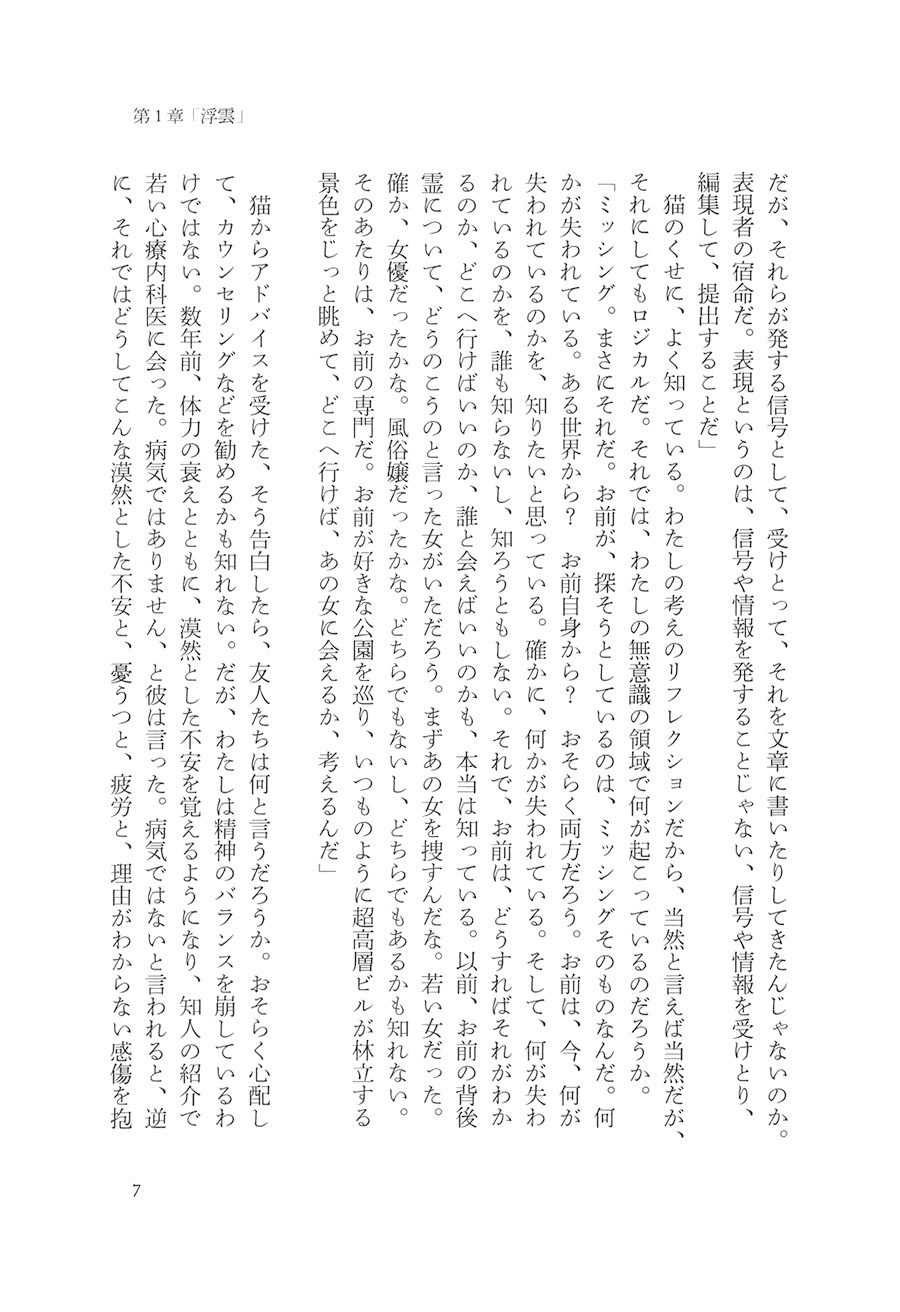 第１章「浮雲」
だが、それらが発する信号として、受けとって、それを文章に書いたりしてきたんじゃないのか。
表現者の宿命だ。表現というのは、信号や情報を発することじゃない、信号や情報を受けとり、
編集して、提出することだ」
　猫のくせに、よく知っている。わたしの考えのリフレクションだから、当然と言えば当然だが、
それにしてもロジカルだ。それでは、わたしの無意識の領域で何が起こっているのだろうか。
「ミッシング。まさにそれだ。お前が、探そうとしているのは、ミッシングそのものなんだ。何
かが失われている。ある世界から？　お前自身から？　おそらく両方だろう。お前は、今、何が
失われているのかを、知りたいと思っている。確かに、何かが失われている。そして、何が失わ
れているのかを、誰も知らないし、知ろうともしない。それで、お前は、どうすればそれがわか
るのか、どこへ行けばいいのか、誰と会えばいいのかも、本当は知っている。以前、お前の背後
霊について、どうのこうのと言った女がいただろう。まずあの女を捜すんだな。若い女だった。
確か、女優だったかな。風俗嬢だったかな。どちらでもないし、どちらでもあるかも知れない。
そのあたりは、お前の専門だ。お前が好きな公園を巡り、いつものように超高層ビルが林立する
景色をじっと眺めて、どこへ行けば、あの女に会えるか、考えるんだ」
　猫からアドバイスを受けた、そう告白したら、友人たちは何と言うだろうか。おそらく心配し
て、カウンセリングなどを勧めるかも知れない。だが、わたしは精神のバランスを崩しているわ
けではない。数年前、体力の衰えとともに、漠然とした不安を覚えるようになり、知人の紹介で
若い心療内科医に会った。病気ではありません、と彼は言った。病気ではないと言われると、逆
に、それではどうしてこんな漠然とした不安と、憂うつと、疲労と、理由がわからない感傷を抱
7